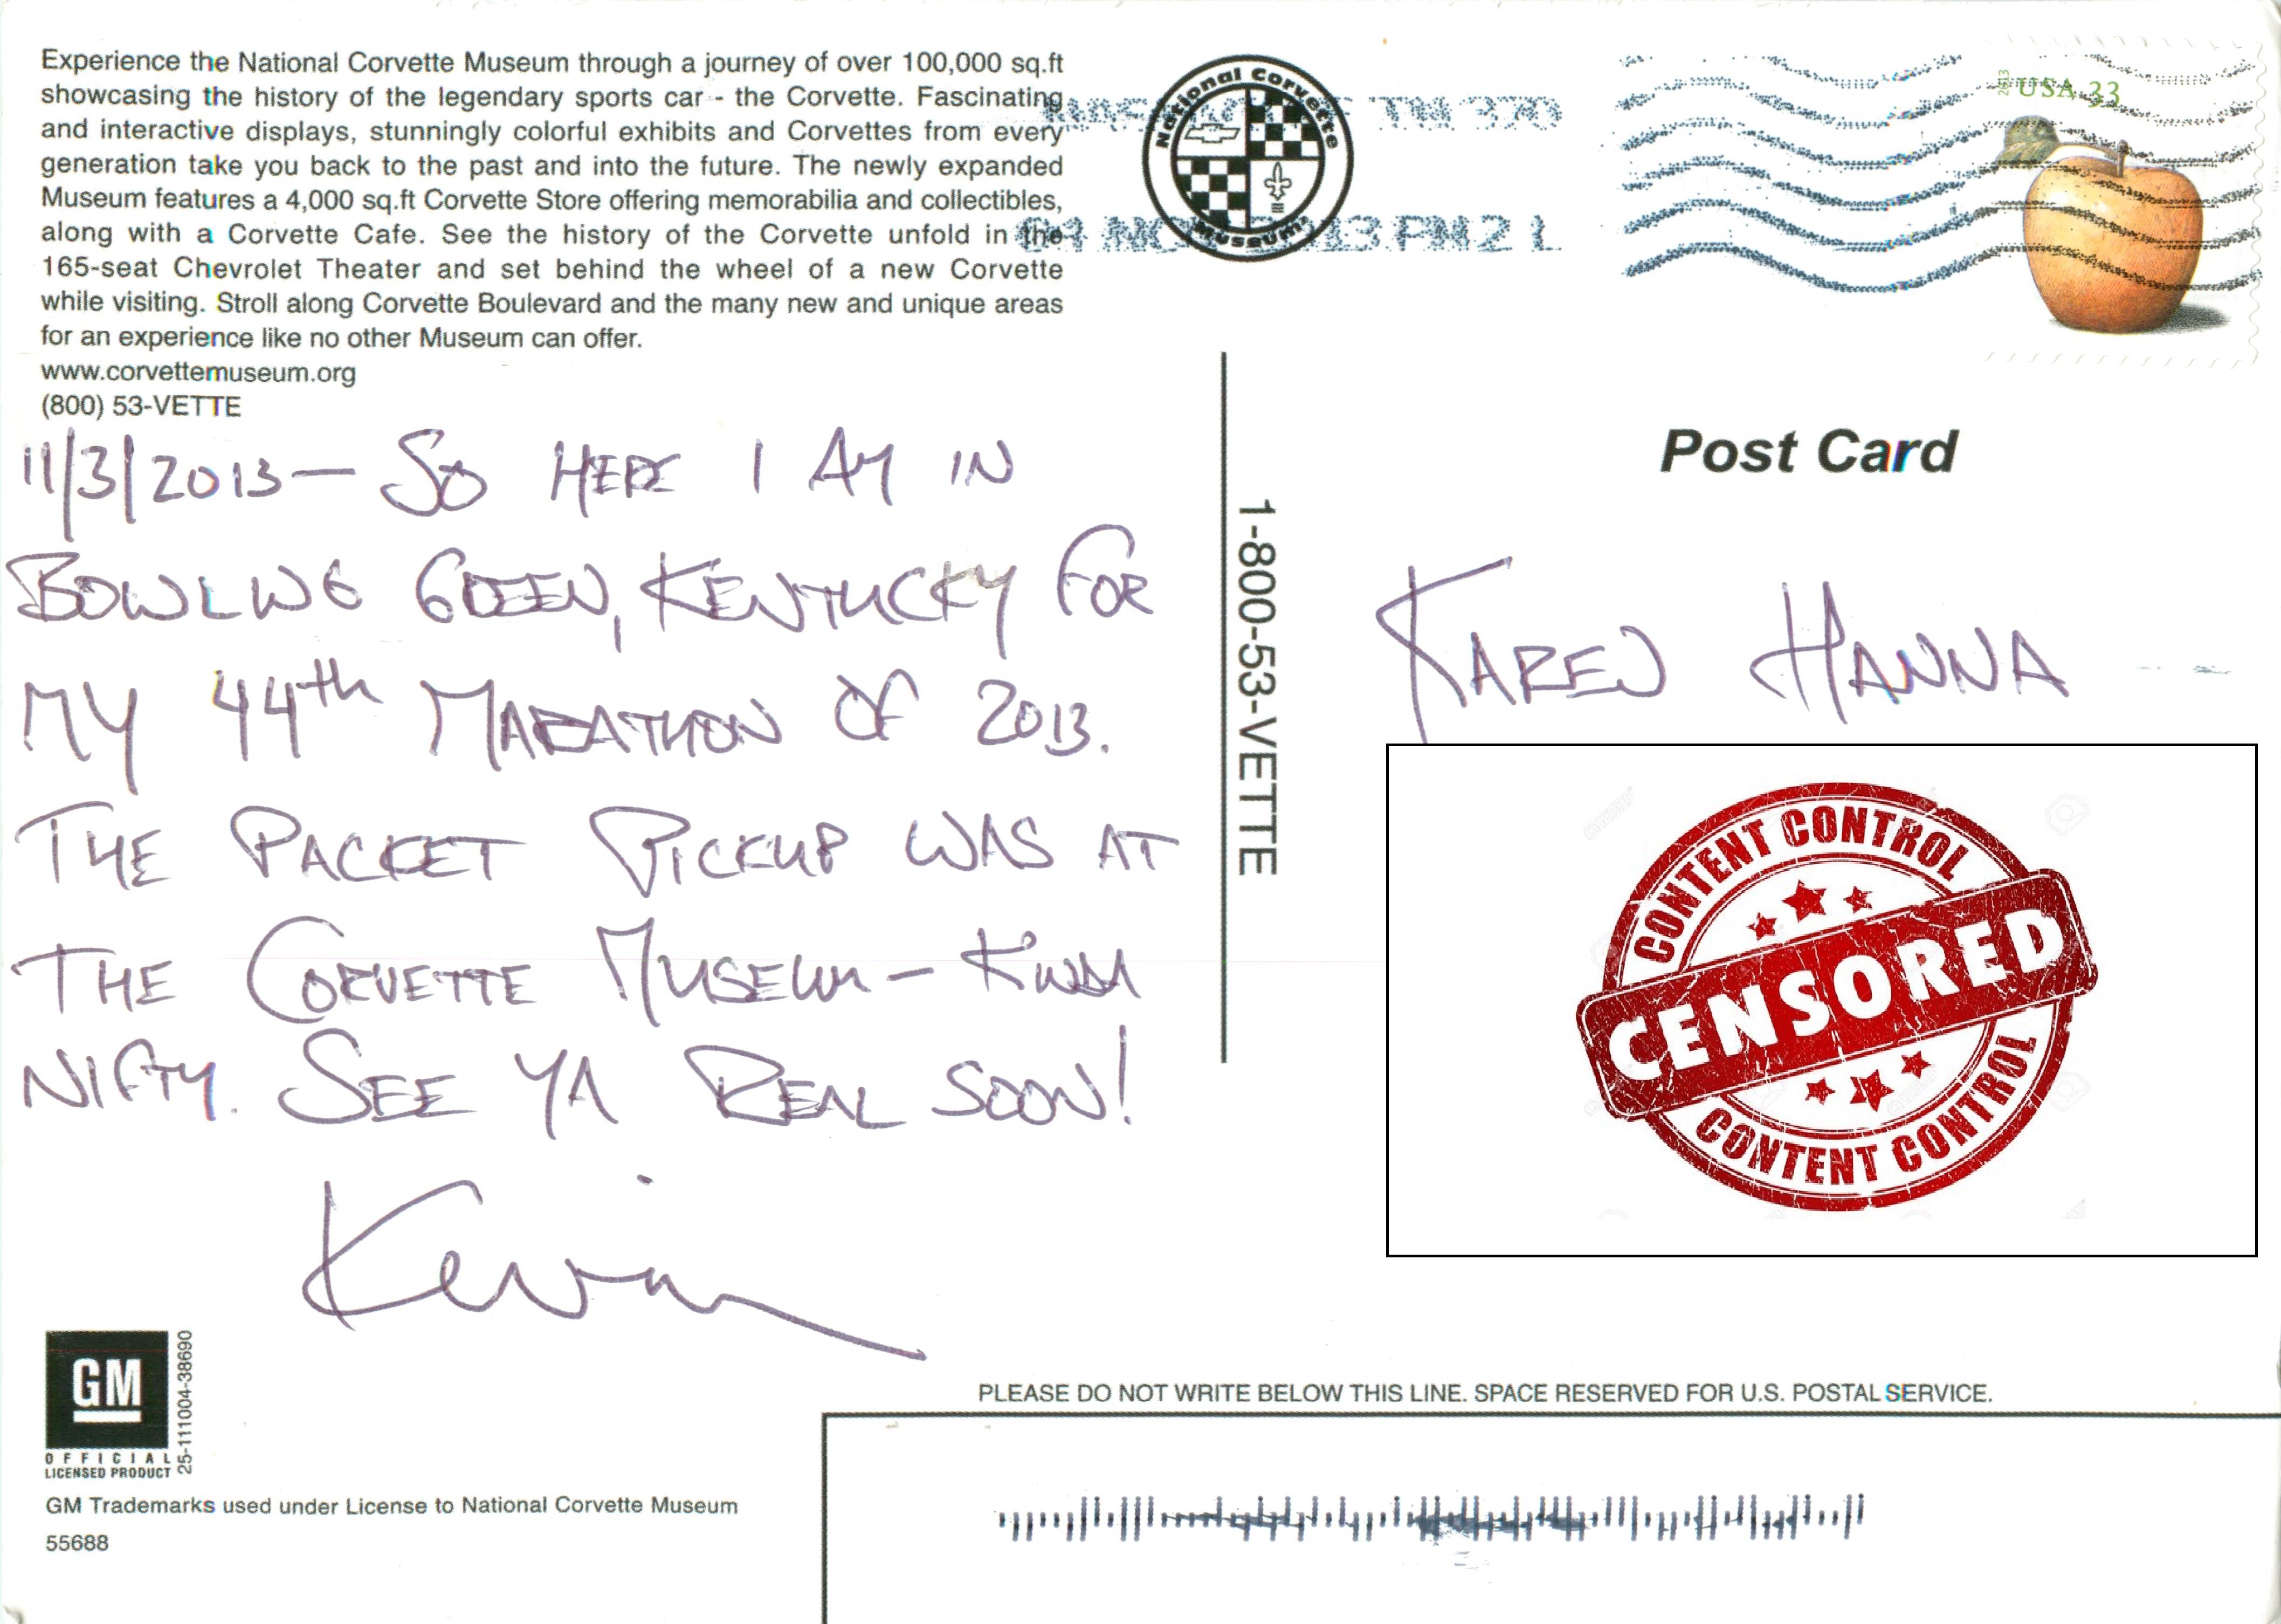 Experience the National Corvette Museum through a journey of over 100,000 sq.ft
showcasing the history of the legendary sports car - the Corvette. Fascinating
and interactive displays, stunningly colorful exhibits and Corvettes from every
generation take you back to the past and into the future. The newly expanded
Museum features a 4,000 sq.ft Corvette Store offering memorabilia and collectibles,
along with a Corvette Cafe. See the history of the Corvette unfold in the
165-seat Chevrolet Theater and set behind the wheel of a new Corvette
while visiting. Stroll along Corvette Boulevard and the many new and unique areas
for an experience like no other Museum can offer.
www.corvettemuseum.org
(800) 53-VETTE
National Corvette
Museum
TN 370
13 PM 2 L
2013
USA 33
11/3/2013 - SO HERE I AM IN
BOWLING GREEN, KENTUCKY FOR
MY 44th MARATHON OF 2013.
THE PACKET PICKUP WAS AT
THE CORVETTE MUSEUM - KINDA
NIFTY. SEE YA REAL SOON!
Kevin
1-800-53-VETTE
Post Card
KAREN HANNA
CONTENT CONTROL
CENSORED
CONTENT CONTROL
GM
OFFICIAL
LICENSED PRODUCT
25-111004-38690
GM Trademarks used under License to National Corvette Museum
55688
PLEASE DO NOT WRITE BELOW THIS LINE. SPACE RESERVED FOR U.S. POSTAL SERVICE.